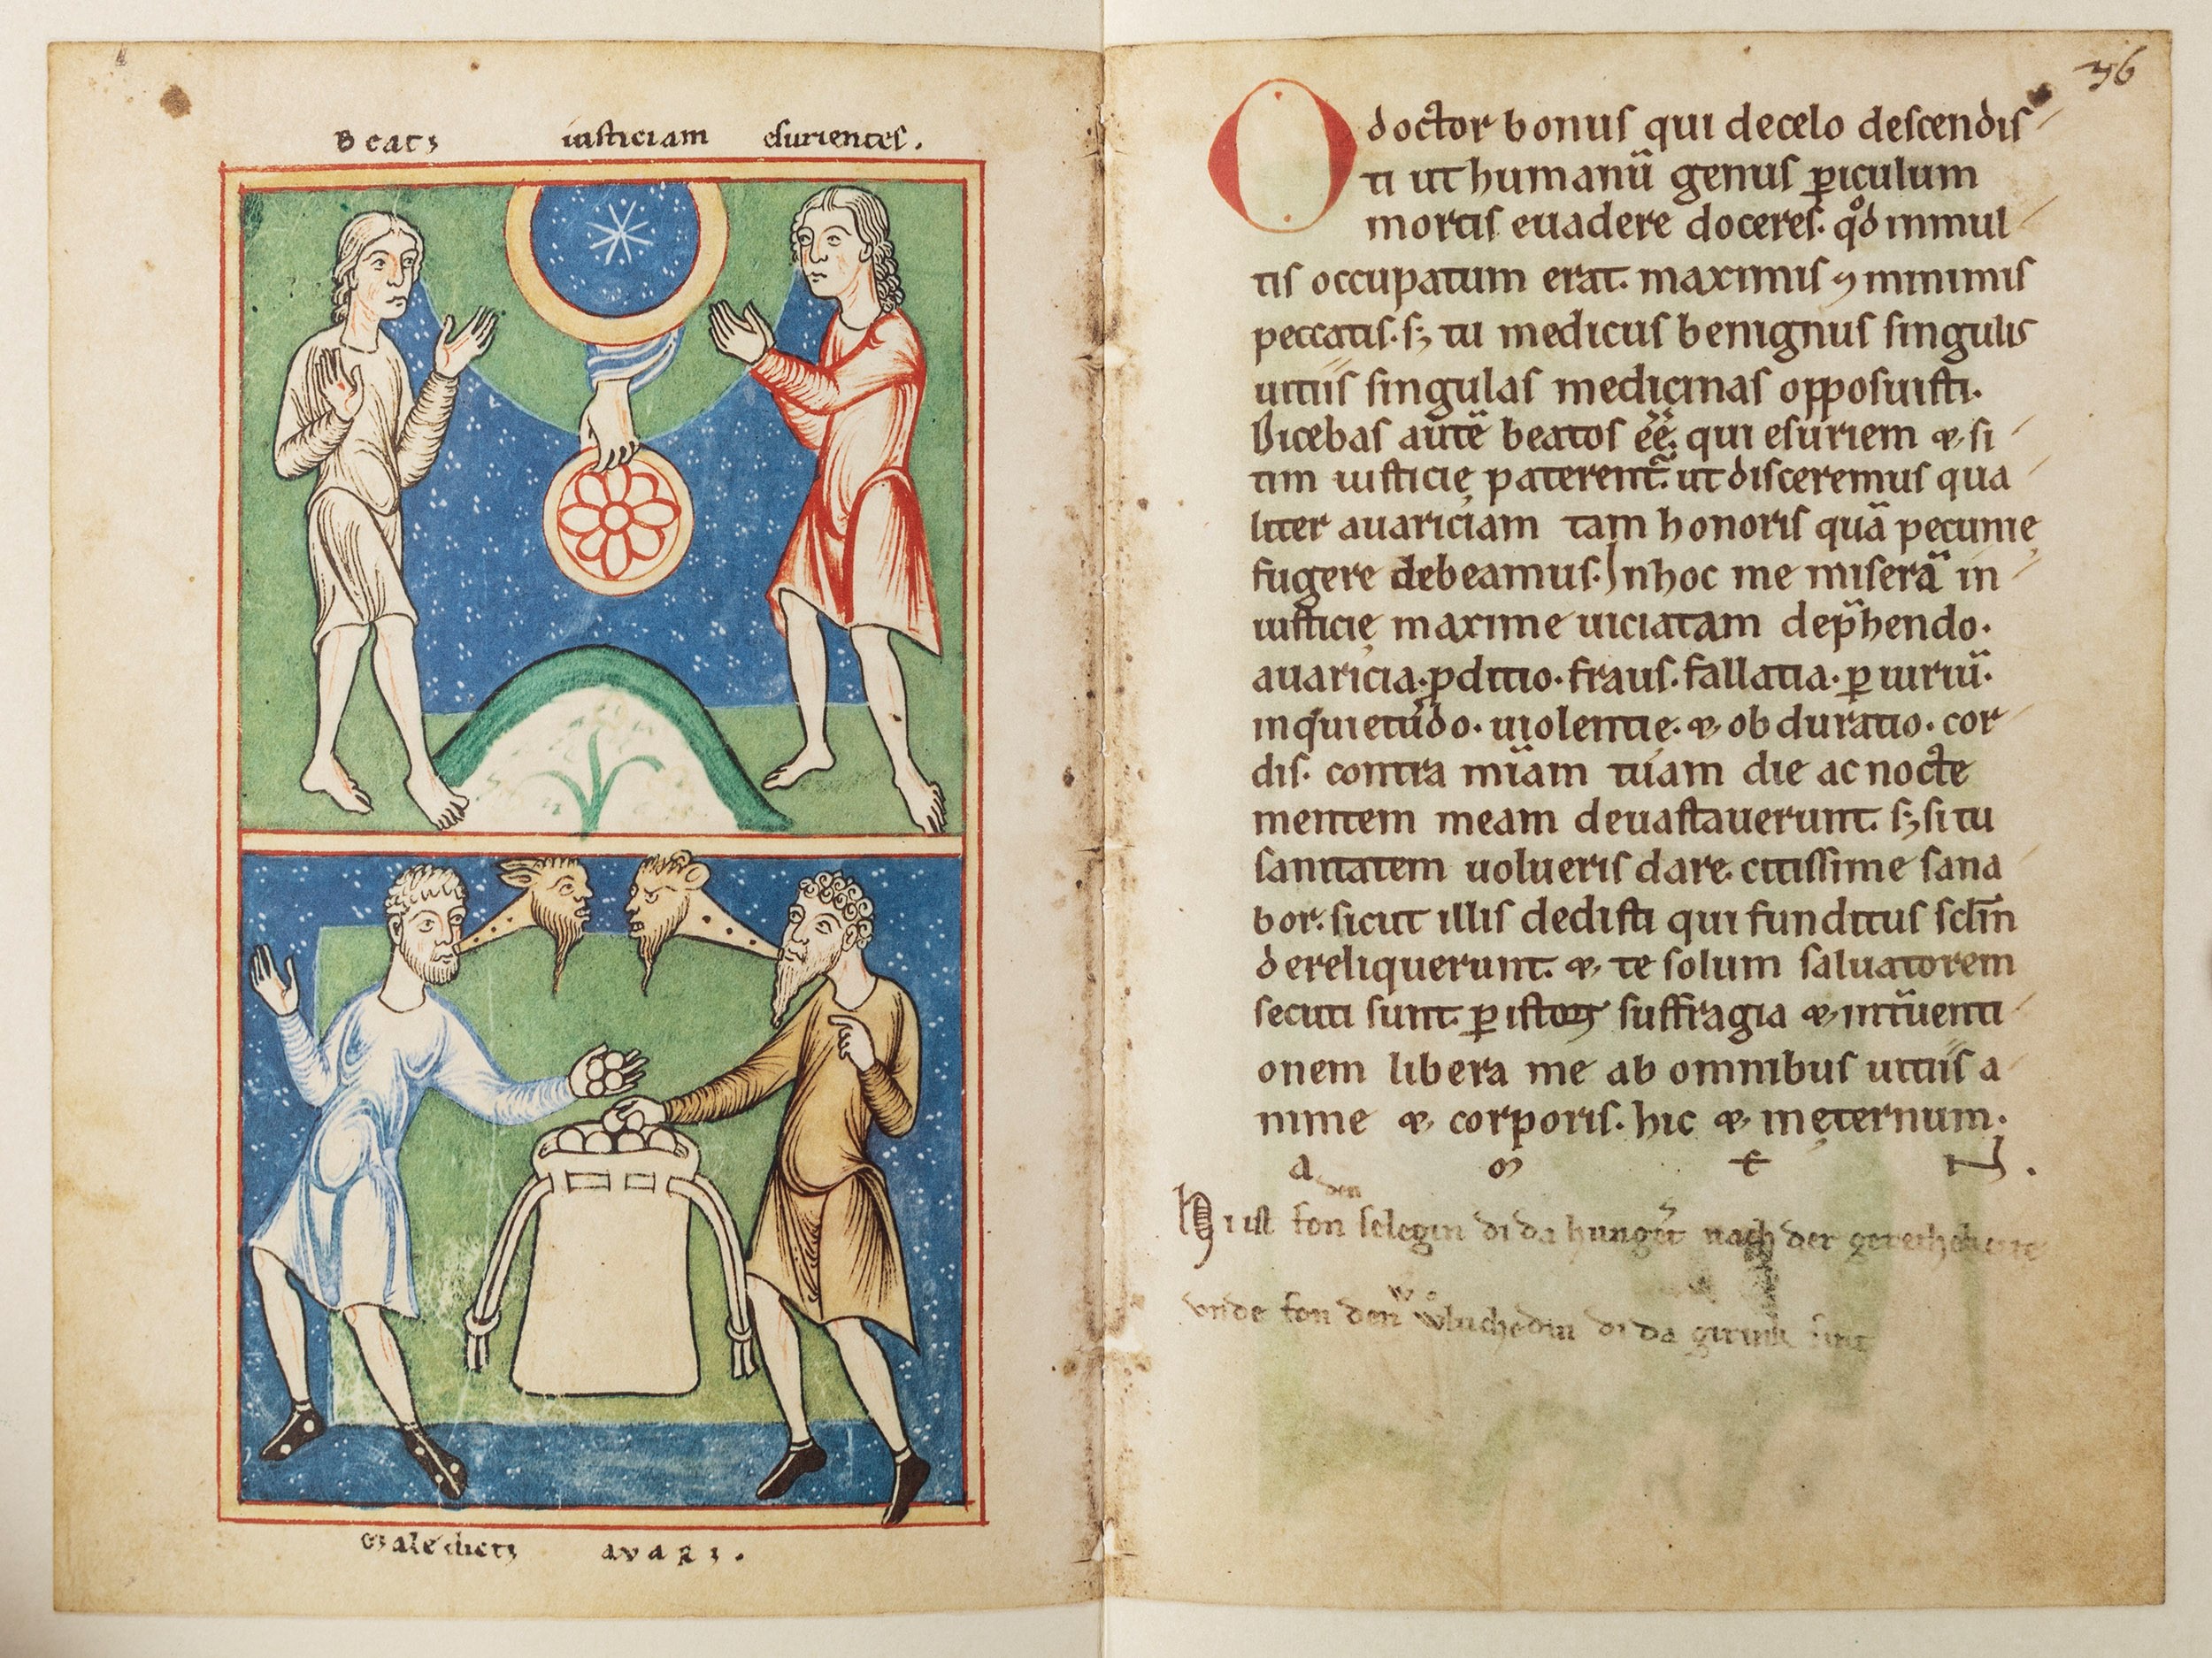 Beati iusticiam esurientes.
Maledicti avari.
36
O doctor bonus qui de celo descendis
ti ut humanū genus ꝑiculum
mortis euadere doceres. qd̊ in mul
tis occupatum erat. maximis ꝯ minimis
peccatis. sꝫ tu medicus benignus singulis
uitiis singulas medicinas opposuisti.
Dicebas autē beatos ēē. qui esuriem & si
tim iusticię paterent̄. ut disceremus qua
liter auariciam tam honoris quā pecunię
fugere debeamus. In hoc me miserā in
iusticię maxime uiciatam dep̄hendo.
auaricia. ꝓditio. fraus. fallatia. ꝑiuriū.
inquietudo. uiolentię. & obduratio. cor
dis. contra mīam tuam die ac nocte
mentem meam deuastauerunt. sꝫ si tu
sanitatem uolueris dare. citissime sana
bor. sicut illis dedisti qui funditus sclm̄
dereliquerunt. & te solum saluatorem
secuti sunt. ꝑ istoꝝ suffragia & int̄uenti
onem libera me ab omnibus uitiis a
nime & corporis. hic & in ęternum.
a m e N.
den
Hi ist fon selegin di da hunget nach der gerechekeite
vnde fon den wluchedin di da girink sint